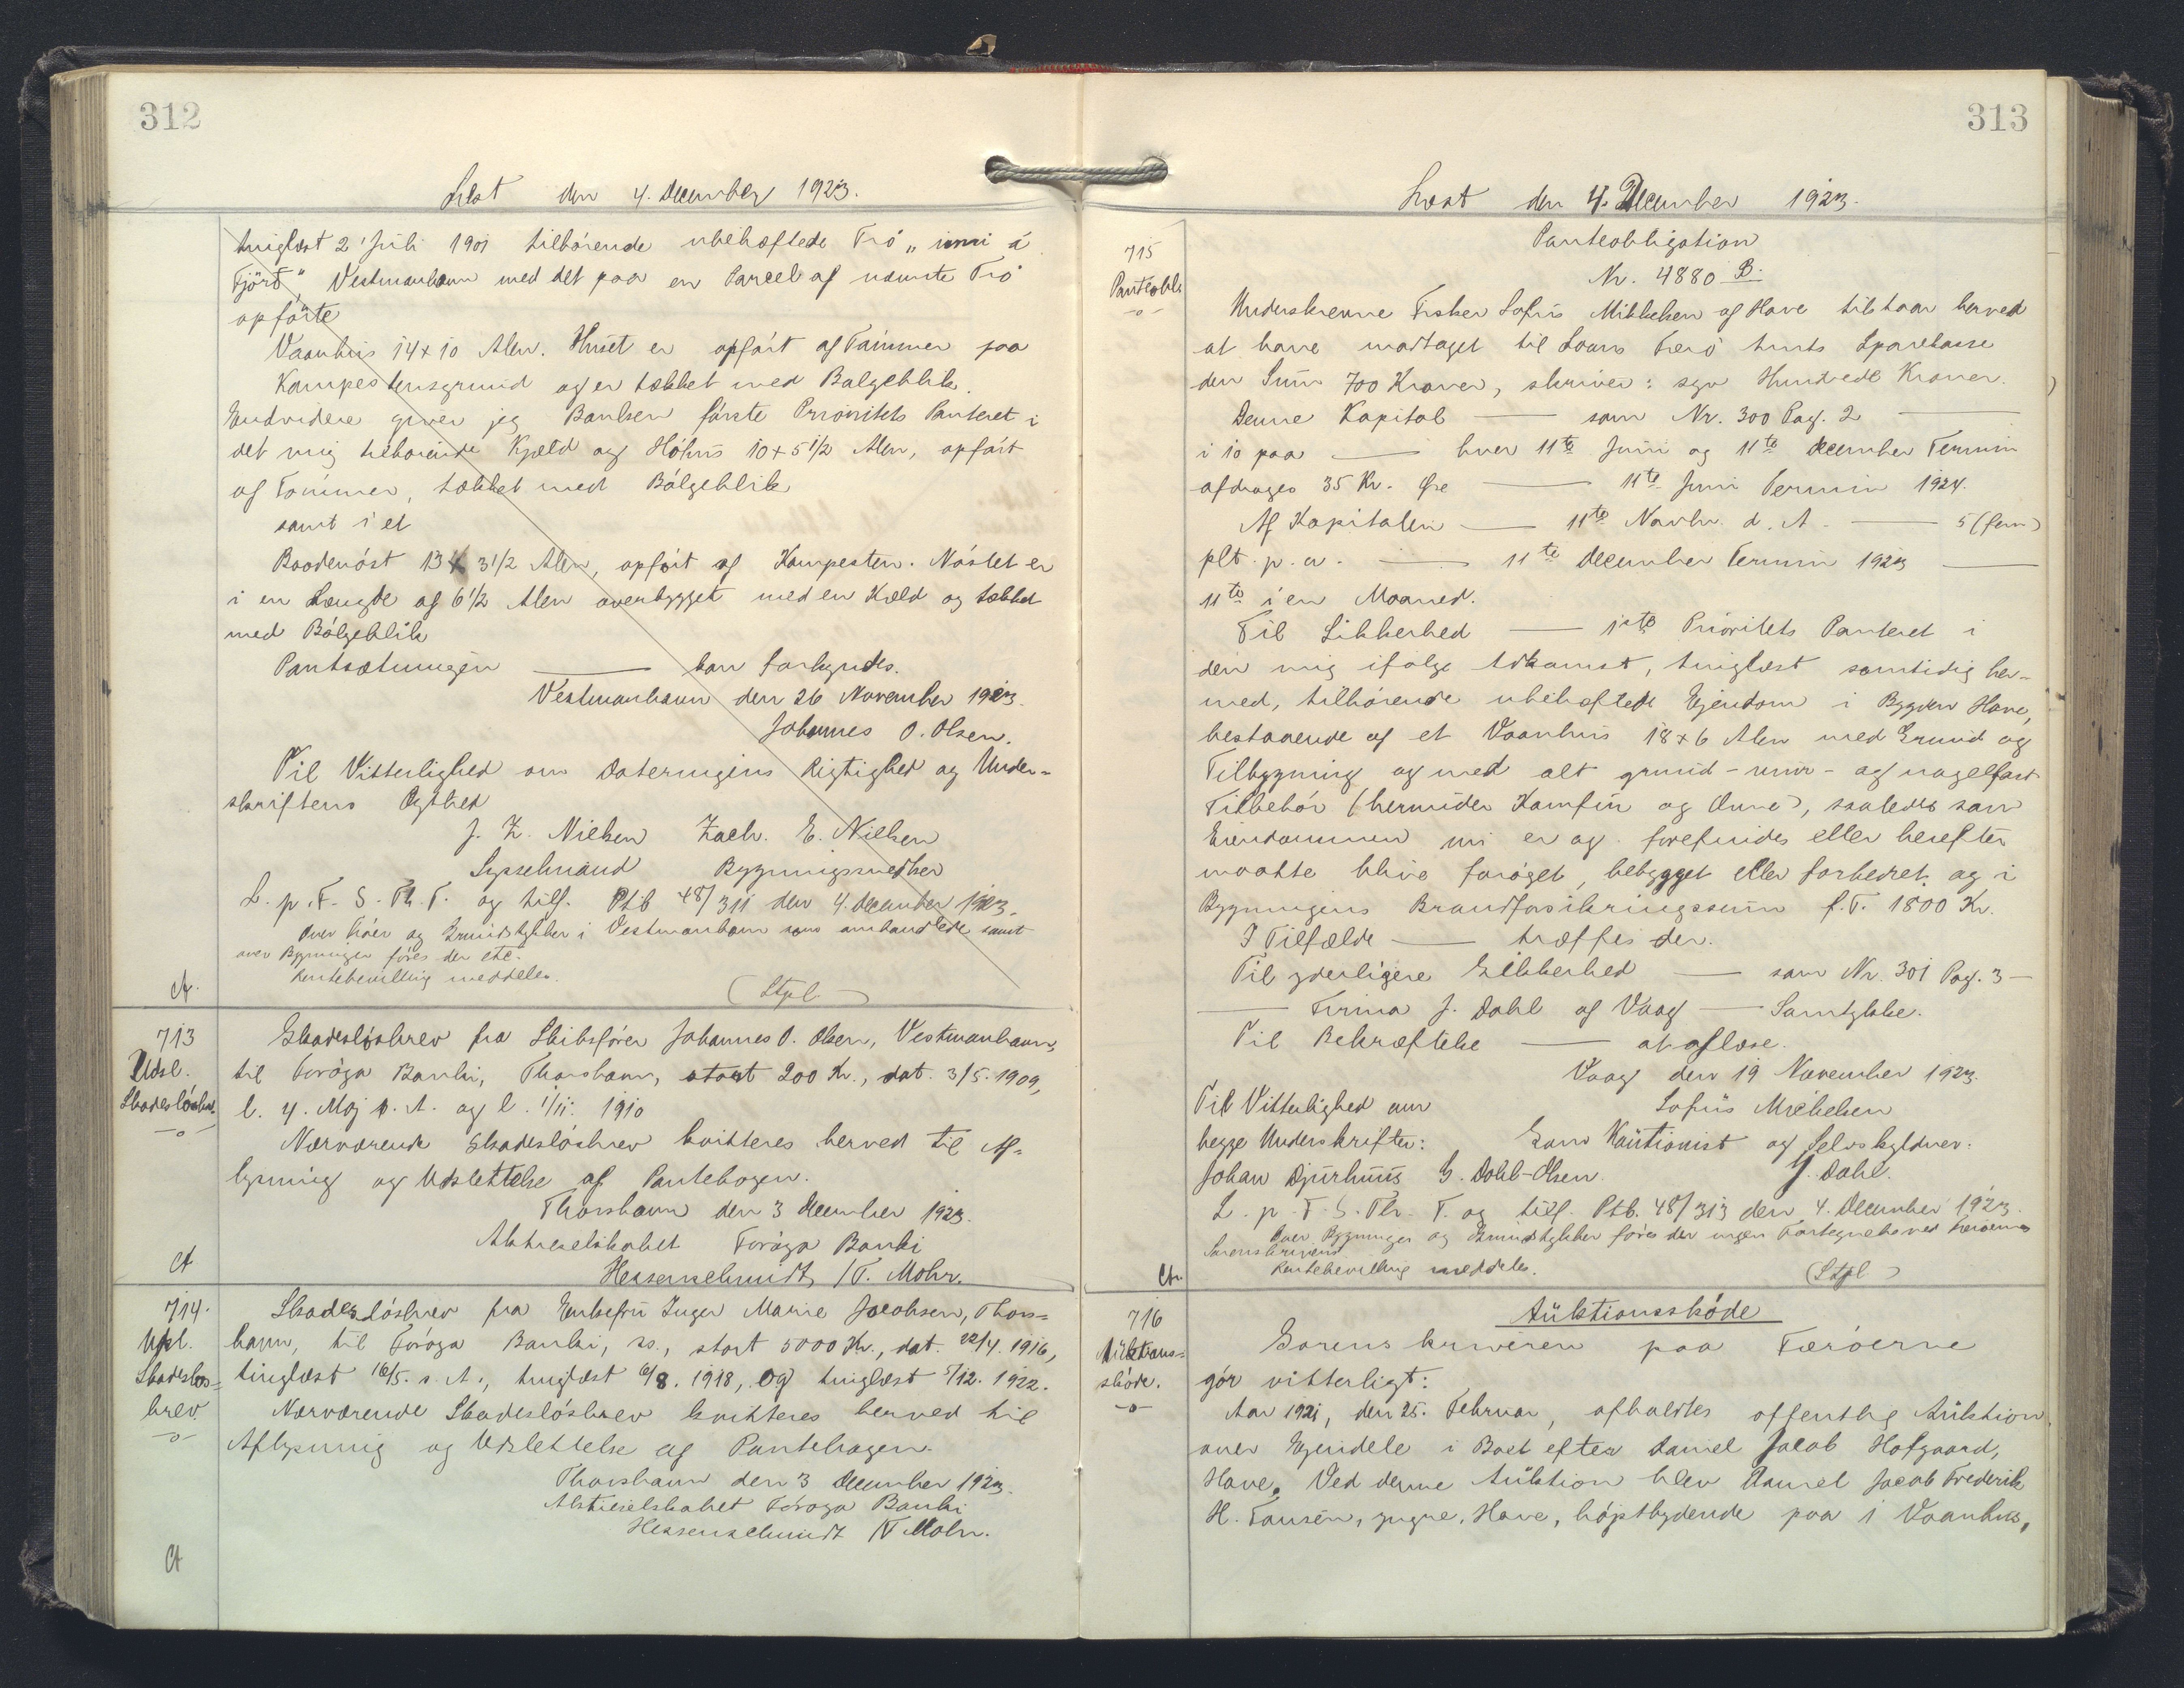 312
Læst den 4. December 1923.
tinglæst 2 Juli 1901 tilhörende ubehæftede Tró „inni á
Fjörð", Vestmanhavn med det paa en Parcel af nævnte Tró
opförte
Vaanhus 14 x 10 Alen. Huset er opfört af Tømmer paa
Kampestensgrund og er tækket med Bølgeblik.
Endvidere giver jeg Banken første Prioritets Panteret i
det mig tilhørende Kjæld og Høhus 10 x 5 1/2 Alen, opfört
af Tømmer, tækket med Bølgeblik
samt i et
Baadenöst 13 x 3 1/2 Alen, opfört af Kampesten. Nöstet er
i en Længde af 6 1/2 Alen overbygget med en Kæld og tækket
med Bølgeblik
Pantsætningen —— kan forkyndes.
Vestmanhavn den 26 November 1923.
Johannes O. Olsen.
Til Vitterlighed om Dateringens Rigtighed og Under-
skriftens Ægthed
J. Z. Nielsen Zach. E. Nielsen
Sysselmand Bygningssnedker
L. p. F. S. Th. T. og tilf. Ptb 48/311 den 4. December 1923.
Over Tróer og Grundstykker i Vestmanhavn som omhandlede samt
over Bygninger føres der etc.
Rentebevilling meddeles.
Ct. (Stpl.)
713
Udsl.
Skadesløsbr.
-o-
Skadesløsbrev fra Skibsfører Johannes O. Olsen, Vestmanhavn,
til Føroya Banki, Thorshavn, stort 200 Kr., dat. 3/5. 1909,
l. 4. Maj s. A. og l. 1/11. 1910
Nærværende Skadesløsbrev kvitteres herved til Af-
lysning og Udslettelse af Pantebogen.
Thorshavn den 3 December 1923.
Aktieselskabet Føroya Banki
Hessenschmidt /T. Mohr.
Ct
714.
Udsl.
Skadesløs-
brev.
-o-
Skadesløsbrev fra Enkefru Inger Marie Jacobsen, Thors-
havn, til Føroya Banki, ss., stort 5000 Kr., dat. 22/4. 1916,
tinglæst 16/5. s. A., tinglæst 6/8. 1918, og tinglæst 5/12. 1922.
Nærværende Skadesløsbrev kvitteres herved til
Aflysning og Udslettelse af Pantebogen.
Thorshavn den 3 December 1923.
Aktieselskabet Føroya Banki
Hessenschmidt /T Mohr.
Ct
313
Læst den 4. December 1923.
715
Panteobl.
-o-
Panteobligation
Nr. 4880 B.
Underskrevne Fisker Sofus Mikkelsen af Hove tilstaar herved
at have modtaget til Laans Færø Amts Sparekasse
den Sum 700 Kroner, skriver: syv Hundrede Kroner.
Denne Kapital —— som Nr. 300 Pag. 2 ——
i 10 paa —— hver 11te Juni og 11te December Termin
afdrages 35 Kr. Øre —— 11te Juni Termin 1924.
Af Kapitalen —— 11te Novbr. d. A. —— 5 (fem)
pCt. p. a. —— 11te December Termin 1923 ——
11te i en Maaned.
Til Sikkerhed —— 1ste Prioritets Panteret i
den mig ifølge Adkomst, tinglæst samtidig her-
med, tilhørende ubehæftede Ejendom i Bygden Hove,
bestaaende af et Vaanhus 18 x 6 Alen med Grund og
Tilbygning og med alt grund- mur- og nagelfast
Tilbehör (herunder Komfur og Ovne), saaledes som
Eiendommen nu er og forefindes eller herefter
maatte blive forøget, bebygget eller forbedret og i
Bygningens Brandforsikringssum f. T. 1800 Kr.
I Tilfælde —— træffes der.
Til yderligere Sikkerhed —— som Nr. 301 Pag. 3 —
—— Firma J. Dahl af Vaag —— Samtykke.
Til Bekræftelse —— at aflæse.
Vaag den 19 November 1923.
Til Vitterlighed om Sofus Mikkelsen
begge Underskrifter: Som Kautionist og Selvskyldner.
Johan Djurhuus G. Dahl-Olsen. J. Dahl.
L. p. F. S. Th. T. og tilf. Ptb. 48/313 den 4. December 1923.
Over Bygninger og Grundstykker føres der ingen Fortegnelse ved Færøernes
Sorenskriveri.
Rentebevilling meddeles. (Stpl)
Ct.
716
Auktions-
skøde.
-o-
Auktionsskøde
Sorenskriveren paa Færøerne
gør vitterligt:
Aar 1921, den 25. Februar, afholdtes offentlig Auktion
over Ejendele i Boet efter Daniel Jacob Hofgaard,
Hove. Ved denne Auktion blev Daniel Jacob Frederik
H. Tausen, yngre, Hove, højstbydende paa 1 Vaanhus,